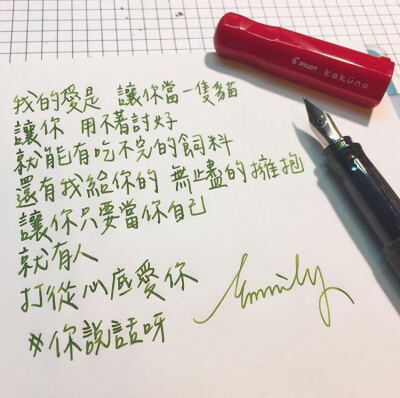 PILOT kaküno
我的愛是 讓你當一隻貓
讓你 用不著討好
就能有吃不完的飼料
還有我給你的 無止盡的擁抱
讓你只要當你自己
就有人
打從心底愛你
Emmily
#你說話呀